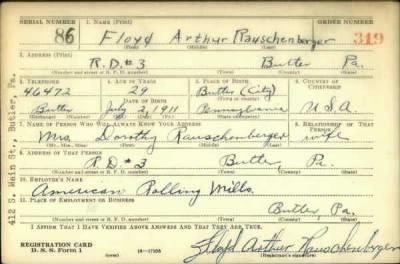 SERIAL NUMBER 1. NAME (Print) ORDER NUMBER
86 Floyd Arthur Rauschenberger 319
(First) (Middle) (Last)
2. ADDRESS (Print)
R.D.#3 Butler Pa.
(Number and street or R. F. D. number) (Town) (County) (State)
3. TELEPHONE 4. AGE IN YEARS 5. PLACE OF BIRTH 6. COUNTRY OF CITIZENSHIP
46472 29 Butler (City)
DATE OF BIRTH
Butler July 2, 1911 Pennsylvania U.S.A.
(Exchange) (Number) (Mo.) (Day) (Yr.) (State or country)
7. NAME OF PERSON WHO WILL ALWAYS KNOW YOUR ADDRESS 8. RELATIONSHIP OF THAT PERSON
Mrs. Dorothy Rauschenberger wife
(Mr., Mrs., Miss) (First) (Middle) (Last)
9. ADDRESS OF THAT PERSON
R.D.#3 Butler Pa.
(Number and street or R. F. D. number) (Town) (County) (State)
10. EMPLOYER'S NAME
American Rolling Mills
11. PLACE OF EMPLOYMENT OR BUSINESS
Butler, Pa.
(Number and street or R. F. D. number) (Town) (County) (State)
I AFFIRM THAT I HAVE VERIFIED ABOVE ANSWERS AND THAT THEY ARE TRUE.
REGISTRATION CARD
D. S. S. Form 1 Floyd Arthur Rauschenberger
(Registrant's signature)
412 S. Main St., Butler, Pa.